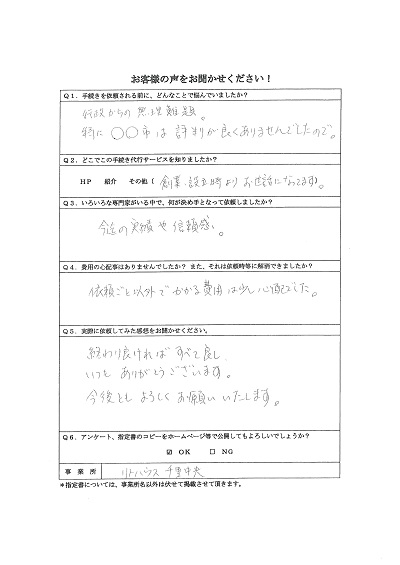 お客様の声をお聞かせください！
Q1．手続きを依頼される前に、どんなことで悩んでいましたか？
行政からの無理難題。
特に〇〇市は評判が良くありませんでしたので。
Q2．どこでこの手続き代行サービスを知りましたか？
HP 紹介 その他（創業・設立時よりお世話になってます。）
Q3．いろいろな専門家がいる中で、何が決め手となって依頼しましたか？
今迄の実績や信頼感。
Q4．費用の心配事はありませんでしたか？また、それは依頼時等に解消できましたか？
依頼ごと以外でかかる費用は少し心配でした。
Q5．実際に依頼してみた感想をお聞かせください。
終わり良ければすべて良し
いつもありがとうございます。
今後ともよろしくお願いいたします。
Q6．アンケート、指定書のコピーをホームページ等で公開してもよろしいでしょうか？
☑ OK □ NG
事業所 リハハウス千里中央
＊指定書については、事業所名以外は伏せて掲載させて頂きます。